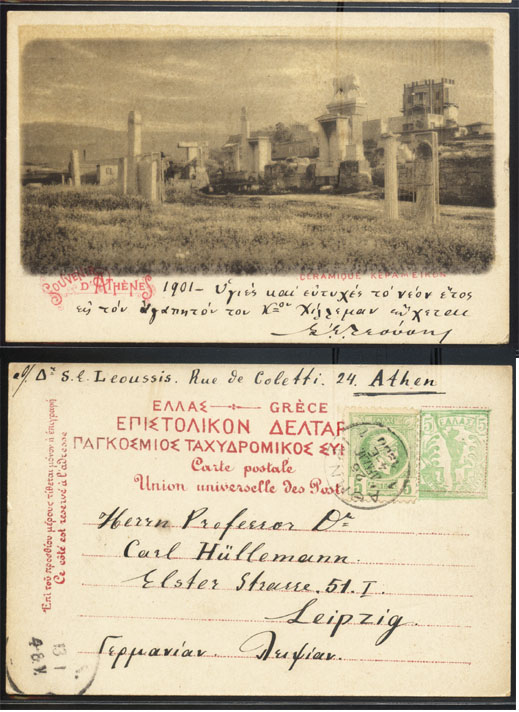 SOUVENIR
D'ATHÈNES
CERAMIQUE ΚΕΡΑΜΕΙΚΟΝ
1901 - Ὑγιὲς καὶ εὐτυχὲς τὸ νέον ἔτος
εἰς τὸν ἀγαπητόν του Κον Χίλλεμαν εὔχεται
Δr S. E. Leoussis. Rue de Coletti. 24. Athen
ΕΛΛΑΣ GRÈCE
ΕΠΙΣΤΟΛΙΚΟΝ ΔΕΛΤΑΡ
ΠΑΓΚΟΣΜΙΟΣ ΤΑΧΥΔΡΟΜΙΚΟΣ ΣΥ
Carte postale
Union universelle des Post
Ἐπὶ τοῦ προσθίου μέρους τίθεται μόνον ἡ ἐπιγραφή
Ce côté est reservé à l'adresse
5 5
5 ΕΛΛΑΣ 5
Herrn Professor Dr
Carl Hüllemann
Elster Strasse. 51. I.
Leipzig
Γερμανίαν. Λειψίαν.
13 1
4-8 V.